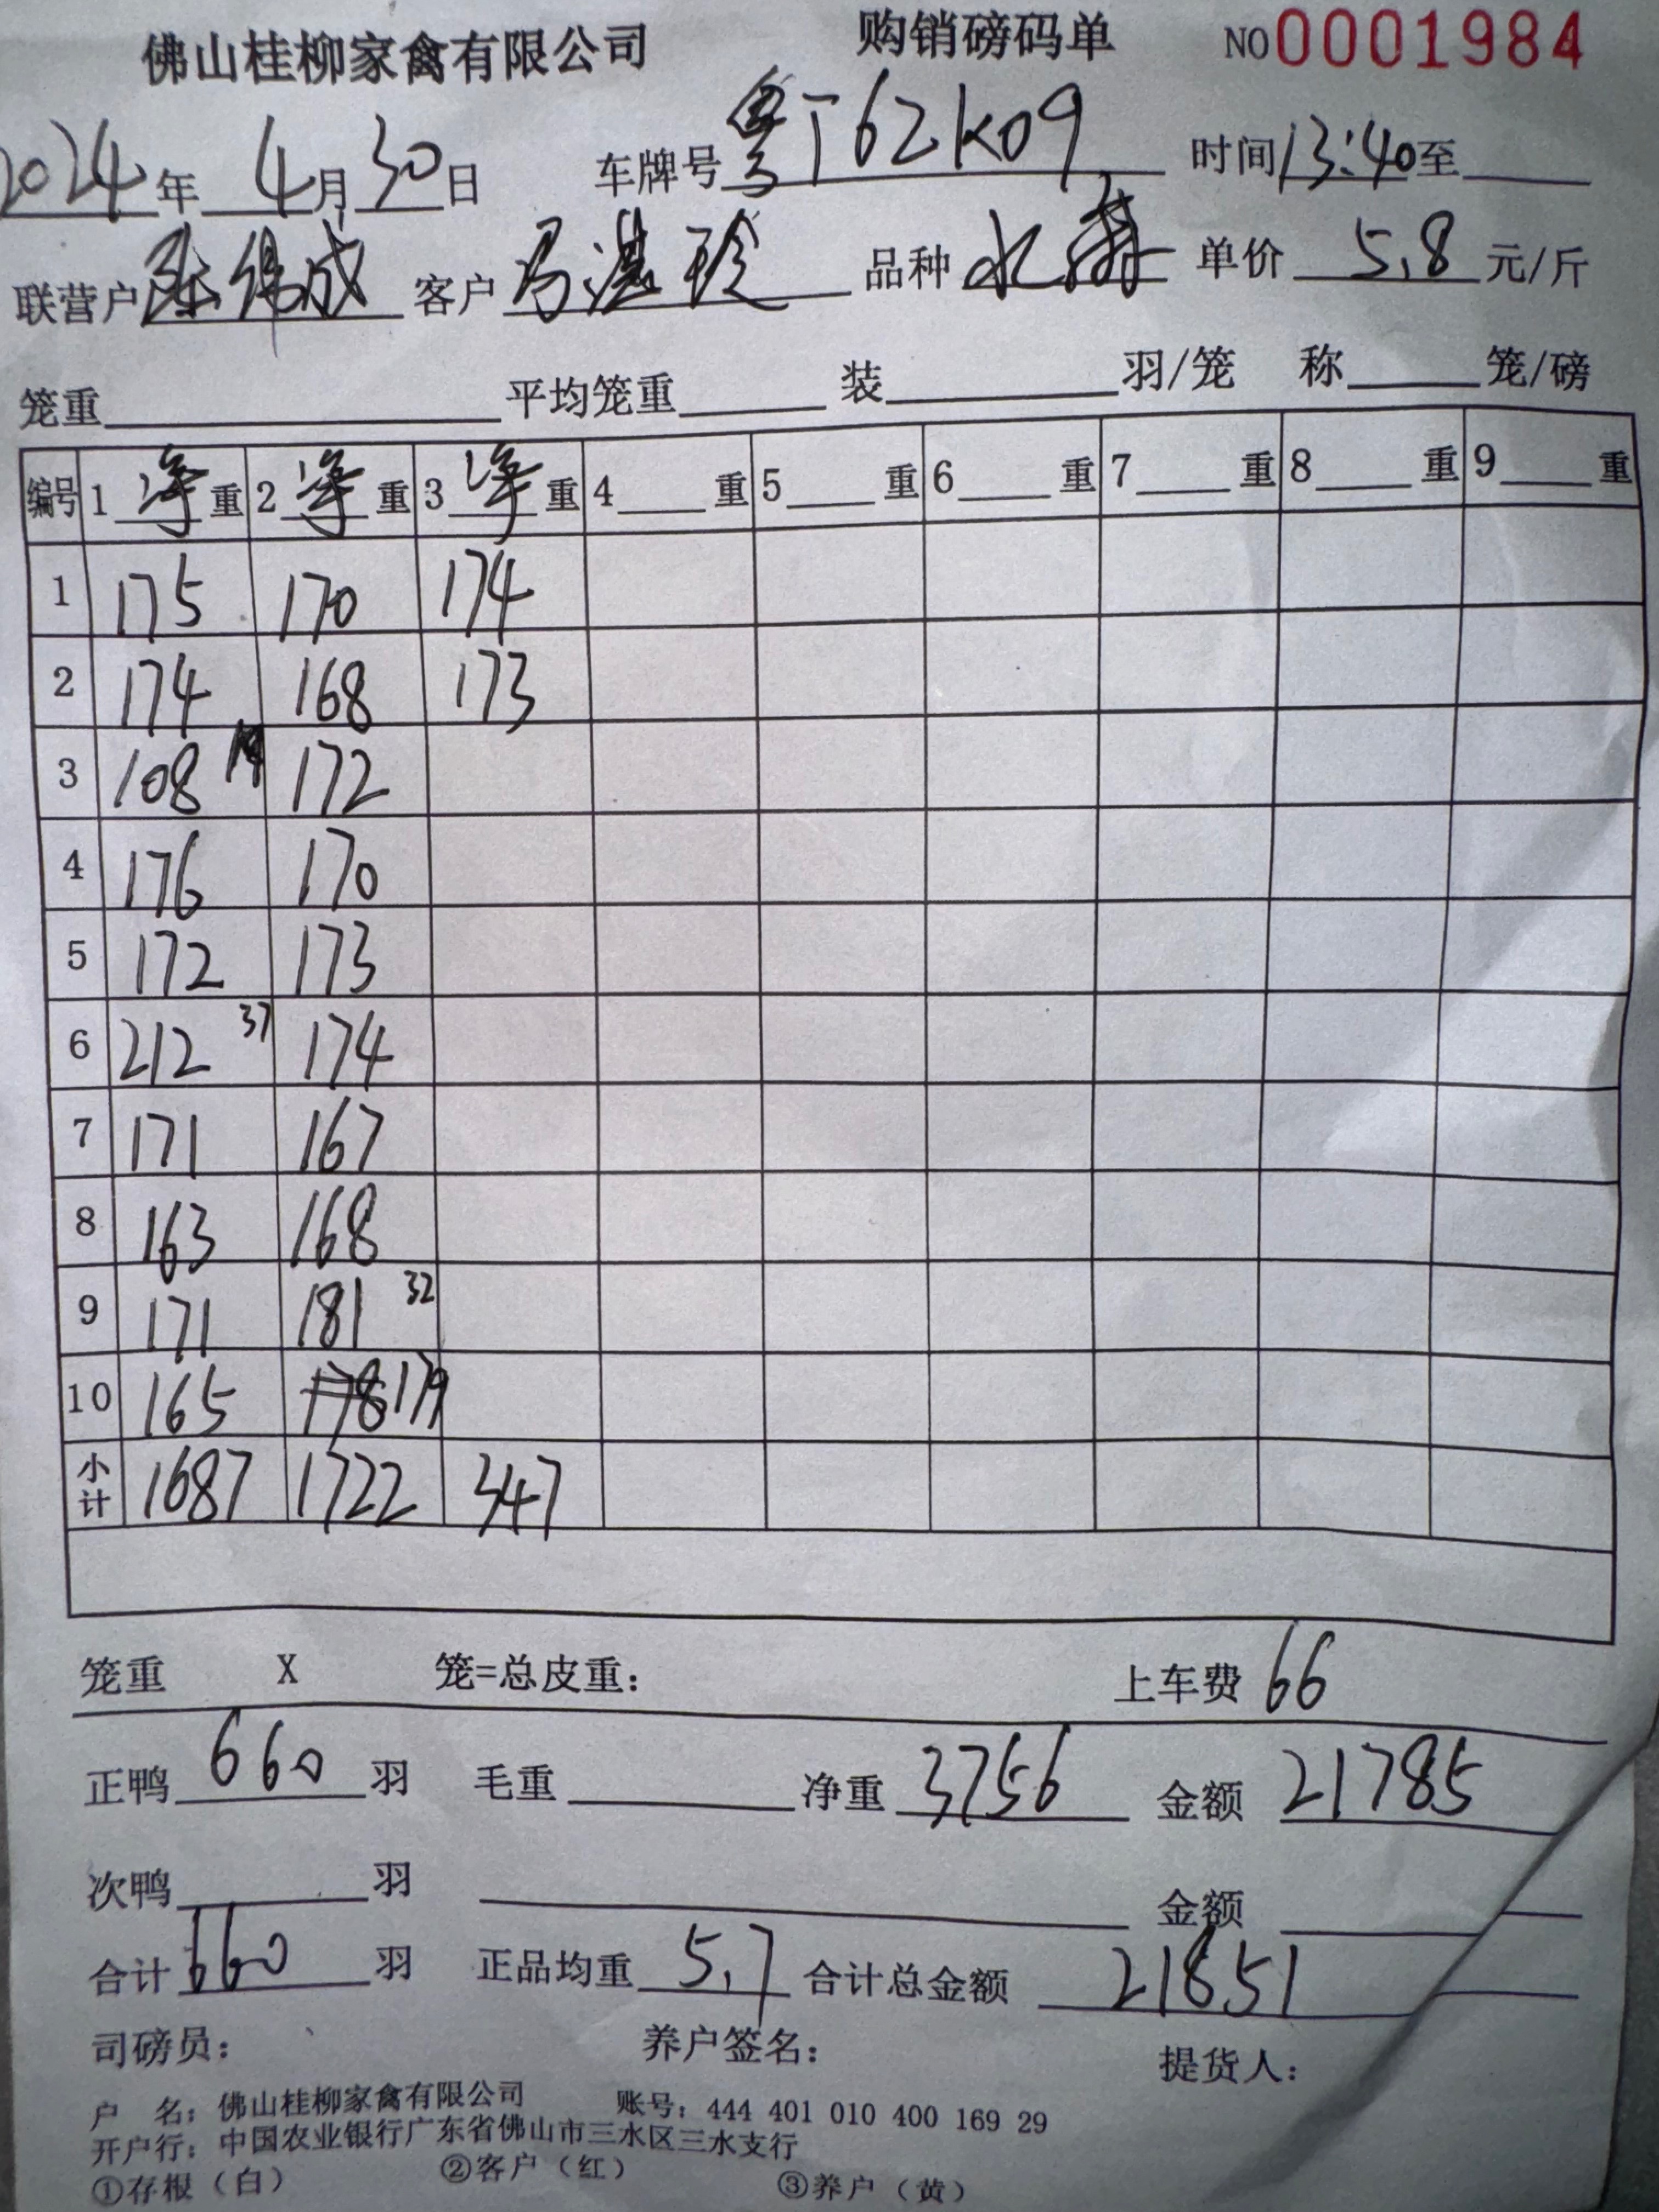 佛山桂柳家禽有限公司 购销磅码单 NO0001984
2024年4月30日 车牌号粤J62K09 时间13:40至
联营户 客户冯洪珍 品种水 单价5.8元/斤
笼重 平均笼重 装 羽/笼 称 笼/磅
编号 1净重 2净重 3净重 4 重 5 重 6 重 7 重 8 重 9 重
1 175 170 174
2 174 168 173
3 108 172
4 176 170
5 172 173
6 212 37 174
7 171 167
8 163 168
9 171 181 32
10 165 178 179
小计 1687 1722 347
笼重 X 笼=总皮重: 上车费66
正鸭660羽 毛重 净重3756 金额21785
次鸭 羽 金额
合计660羽 正品均重5.7 合计总金额21851
司磅员: 养户签名: 提货人:
户 名: 佛山桂柳家禽有限公司 账号: 444 401 010 400 169 29
开户行: 中国农业银行广东省佛山市三水区三水支行
①存根(白) ②客户(红) ③养户(黄)